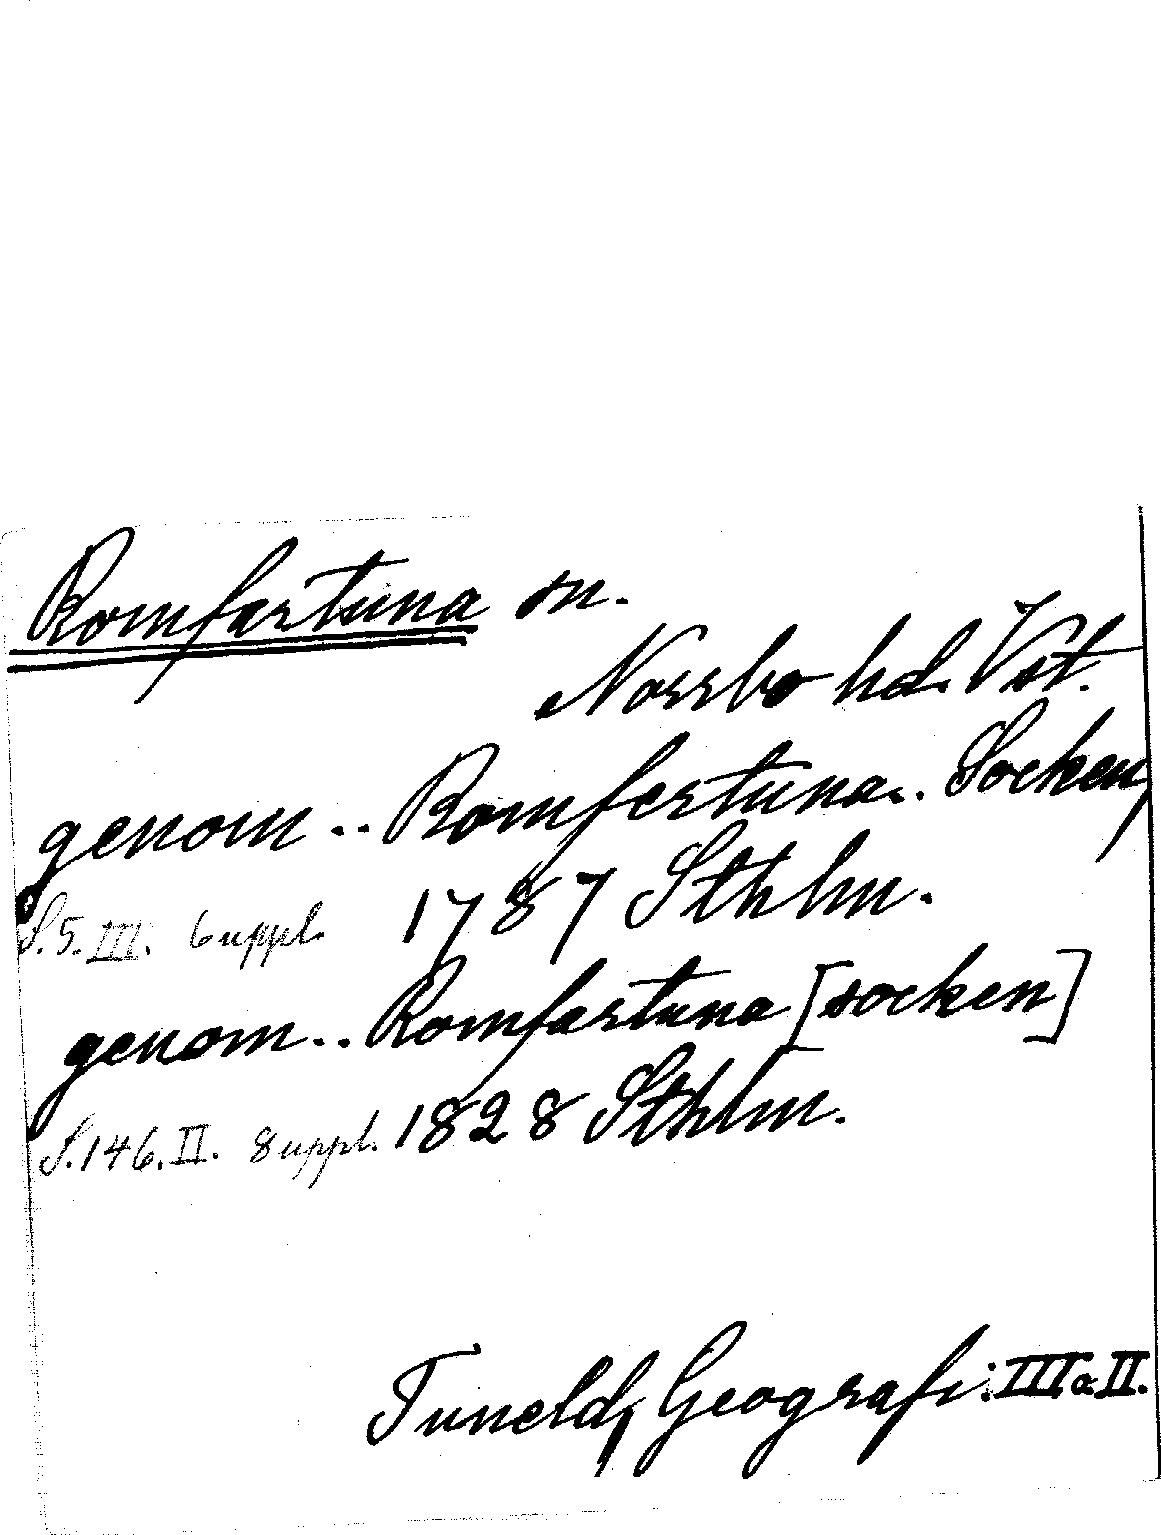 Romfartuna sn.
Norrbo hd. Vst.
genom .. Romfertuna .. Socken,
S. 5. III. 6 uppl. 1787 Sthlm.
genom .. Romfartuna [socken]
S. 146. II. 8 uppl. 1828 Sthlm.
Tuneld, Geografi. III a II.